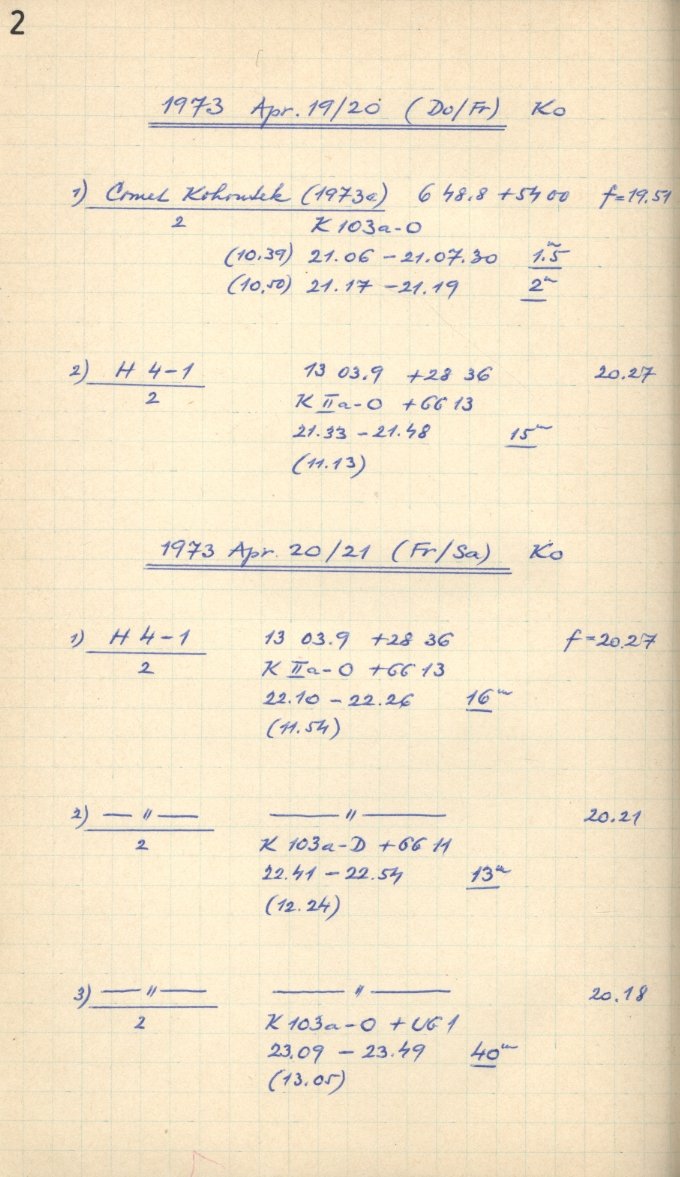 2
1973 Apr. 19/20 (Do/Fr) Ko
1) Comet Kohoutek (1973a) 6 48.8 +54 00 f=19.51
2 K 103a-O
(10.39) 21.06 – 21.07.30 1.5m
(10.50) 21.17 – 21.19 2m
2) H 4-1 13 03.9 +28 36 20.27
2 K IIa-O +GG 13
21.33 – 21.48 15m
(11.13)
1973 Apr. 20/21 (Fr/Sa) Ko
1) H 4-1 13 03.9 +28 36 f=20.27
2 K IIa-O +GG 13
22.10 – 22.26 16m
(11.54)
2) — " — — " — 20.21
2 K 103a-D +GG 11
22.41 – 22.54 13m
(12.24)
3) — " — — " — 20.18
2 K 103a-O + UG 1
23.09 – 23.49 40m
(13.05)